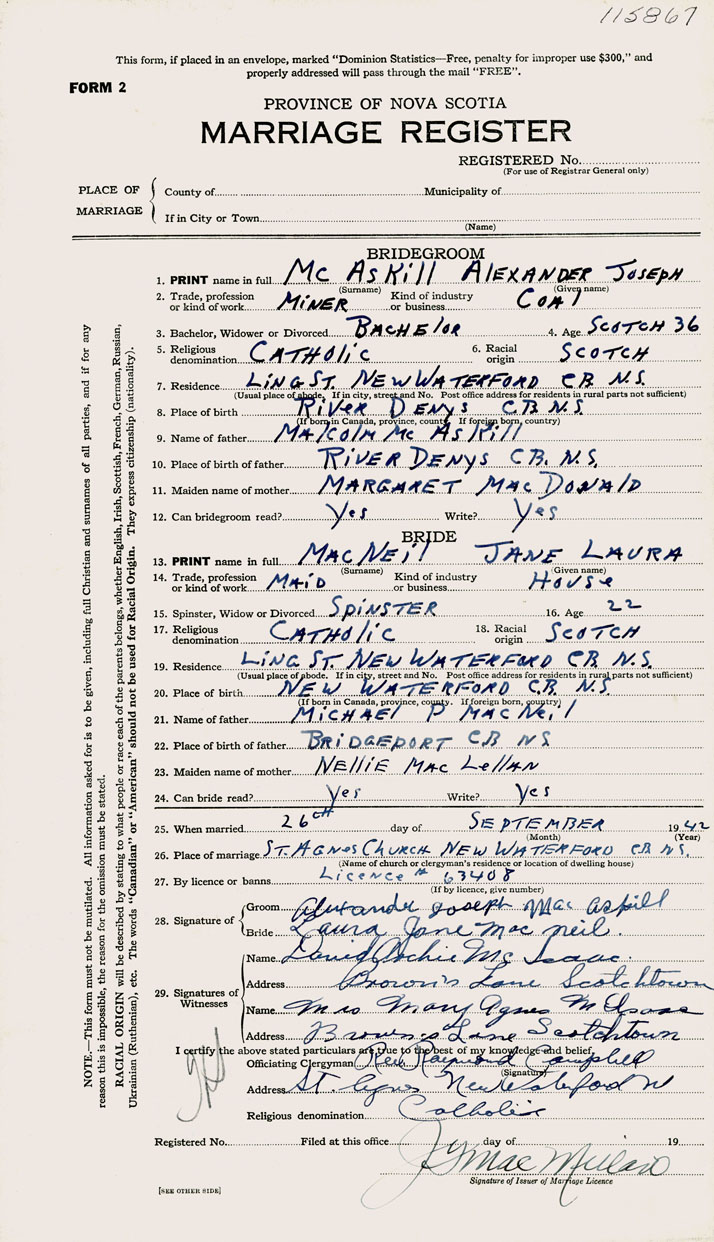 115867
This form, if placed in an envelope, marked "Dominion Statistics—Free, penalty for improper use $300," and
properly addressed will pass through the mail "FREE".
FORM 2
PROVINCE OF NOVA SCOTIA
MARRIAGE REGISTER
REGISTERED No.
(For use of Registrar General only)
PLACE OF MARRIAGE
County of Municipality of
If in City or Town
(Name)
BRIDEGROOM
1. PRINT name in full Mc Askill Alexander Joseph
(Surname) (Given name)
2. Trade, profession or kind of work Miner Kind of industry or business Coal
3. Bachelor, Widower or Divorced Bachelor 4. Age Scotch 36
5. Religious denomination Catholic 6. Racial origin Scotch
7. Residence Ling St. New Waterford C.B. N.S.
(Usual place of abode. If in city, street and No. Post office address for residents in rural parts not sufficient)
8. Place of birth River Denys C.B. N.S.
(If born in Canada, province, county. If foreign born, country)
9. Name of father Malcolm Mc Askill
10. Place of birth of father River Denys C.B. N.S.
11. Maiden name of mother Margaret MacDonald
12. Can bridegroom read? Yes Write? Yes
BRIDE
13. PRINT name in full MacNeil Jane Laura
(Surname) (Given name)
14. Trade, profession or kind of work Maid Kind of industry or business House
15. Spinster, Widow or Divorced Spinster 16. Age 22
17. Religious denomination Catholic 18. Racial origin Scotch
19. Residence Ling St. New Waterford C.B. N.S.
(Usual place of abode. If in city, street and No. Post office address for residents in rural parts not sufficient)
20. Place of birth New Waterford C.B. N.S.
(If born in Canada, province, county. If foreign born, country)
21. Name of father Michael P MacNeil
22. Place of birth of father Bridgeport C.B N.S
23. Maiden name of mother Nellie MacLellan
24. Can bride read? Yes Write? Yes
25. When married 26th day of September 1942
(Month) (Year)
26. Place of marriage St. Agnes Church New Waterford C.B. N.S.
(Name of church or clergyman's residence or location of dwelling house)
27. By licence or banns Licence # 63408
(If by licence, give number)
28. Signature of
Groom Alexander Joseph MacAskill
Bride Laura Jane Mac neil.
29. Signatures of Witnesses
Name David Archie Mc Isaac.
Address Brown's Lane Scotchtown
Name Mrs Mary Agnes McIsaac
Address Brown's Lane Scotchtown
I certify the above stated particulars are true to the best of my knowledge and belief.
Officiating Clergyman Rev Raymond Campbell
(Signature)
Address St. Agnes New Waterford
Religious denomination Catholic
Registered No. Filed at this office day of 19
Mac Millan
Signature of Issuer of Marriage Licence
[SEE OTHER SIDE]
NOTE.—This form must not be mutilated. All information asked for is to be given, including full Christian and surnames of all parties, and if for any
reason this is impossible, the reason for the omission must be stated.
RACIAL ORIGIN will be described by stating to what people or race each of the parents belongs, whether English, Irish, Scottish, French, German, Russian,
Ukrainian (Ruthenian), etc. The words "Canadian" or "American" should not be used for Racial Origin. They express citizenship (nationality).